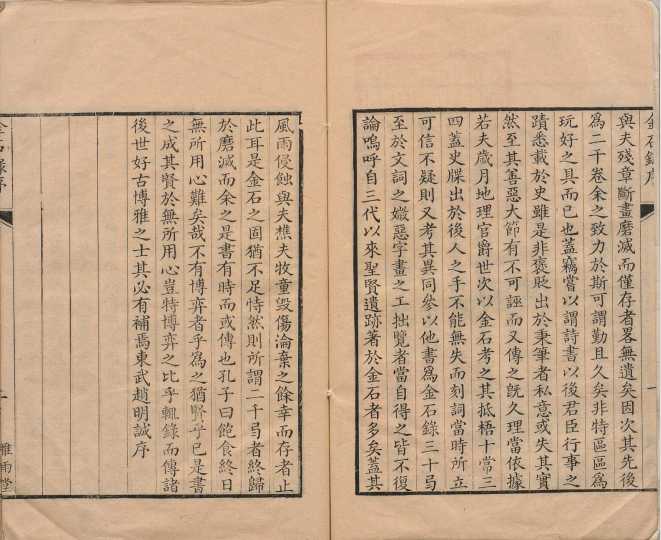 金石錄序
與夫殘章斷畫磨滅而僅存者畧無遺矣因次其先後
為二千卷余之致力於斯可謂勤且久矣非特區區為
玩好之具而已也蓋竊嘗以謂詩書以後君臣行事之
蹟悉載於史雖是非褒貶出於秉筆者私意或失其實
然至其善惡大節有不可誣而又傳之既久理當依據
若夫歲月地理官爵世次以金石考之其抵梧十常三
四蓋史牒出於後人之手不能無失而刻詞當時所立
可信不疑則又考其異同參以他書為金石錄三十弓
至於文詞之媺惡字畫之工拙覽者當自得之皆不復
論嗚呼自三代以來聖賢遺跡著於金石者多矣蓋其
風雨侵蝕與夫樵夫牧童毀傷淪棄之餘幸而存者止
此耳是金石之固猶不足恃然則所謂二千弓者終歸
於磨滅而余之是書有時而或傳也孔子曰飽食終日
無所用心難矣哉不有博弈者乎為之猶賢乎已是書
之成其賢於無所用心豈特博弈之比乎輒錄而傳諸
後世好古博雅之士其必有補焉東武趙明誠序
金石錄序
雅雨堂